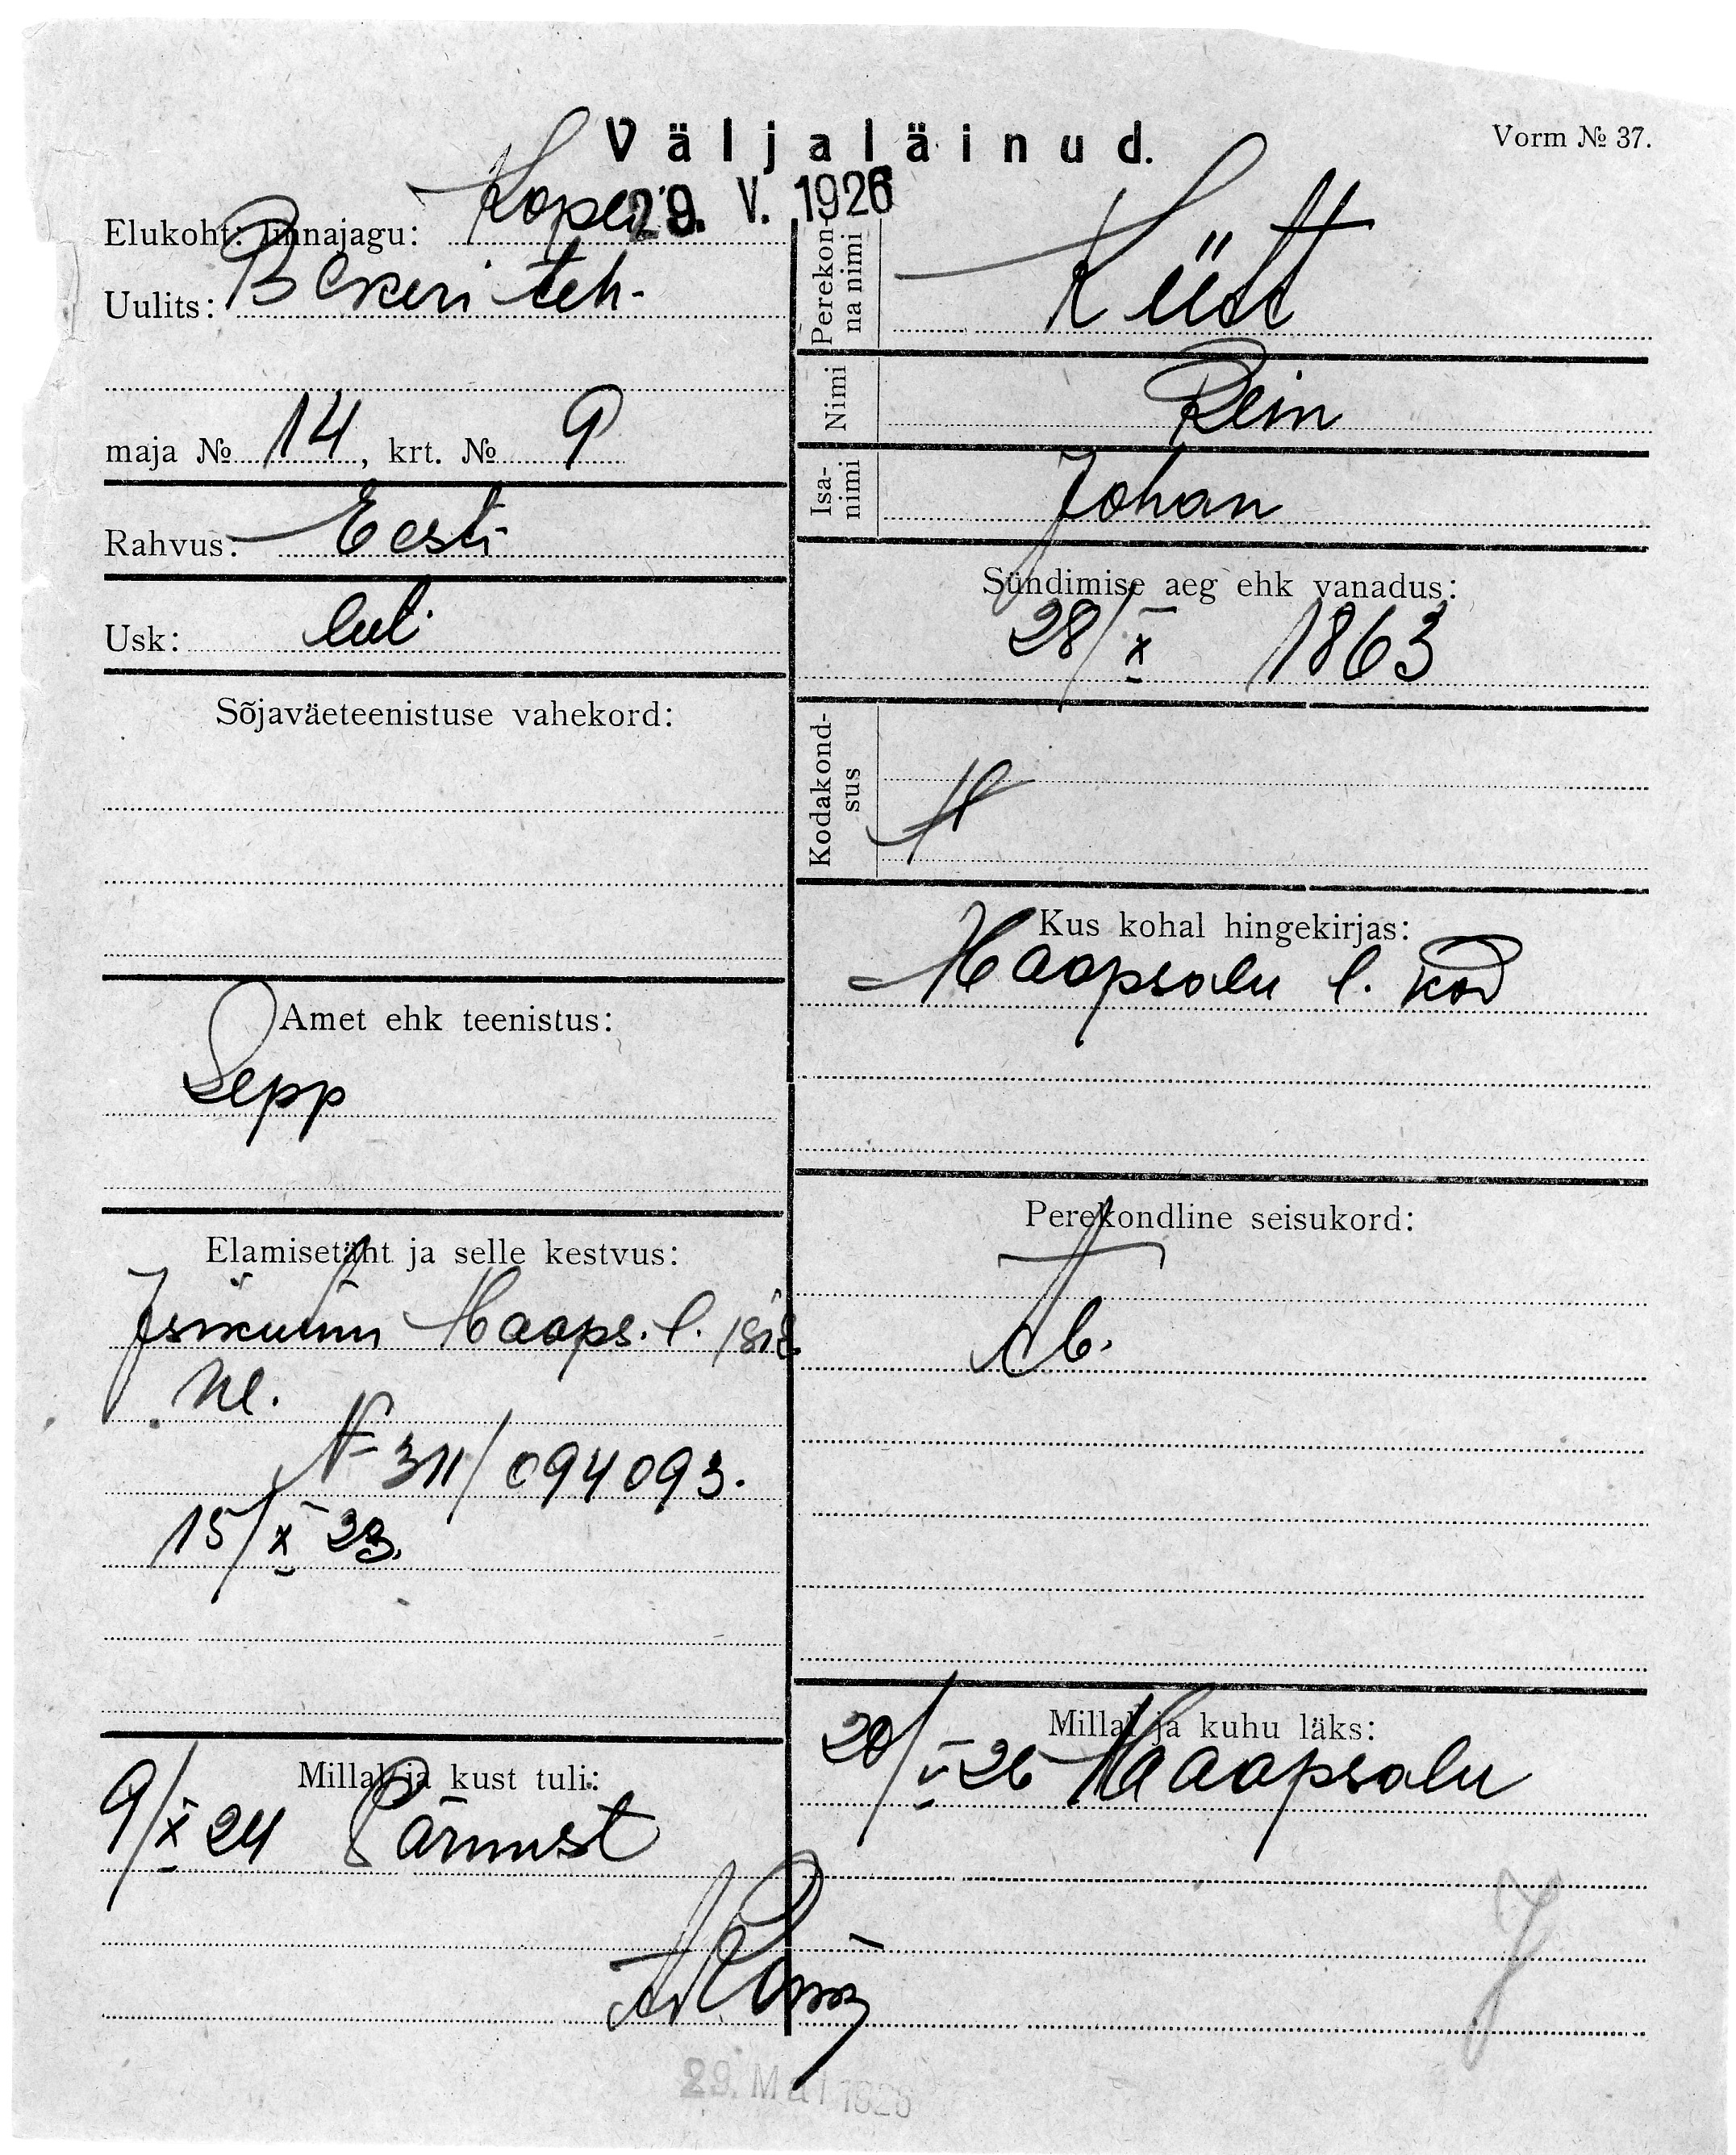 Väljaläinud.
Vorm № 37.
29. V. 1926
Elukoht: linnajagu: Kopli
Uulits: Bekeri teh-
maja № 14, krt. № 9
Rahvus: Eesti
Usk: lut.
Sõjaväeteenistuse vahekord:
Amet ehk teenistus:
Sepp
Elamisetäht ja selle kestvus:
Isikutun Haaps. l.
№ 311/094093.
15/X 23.
Millal ja kust tuli:
9/X 24 Pärnust
Perekon-
na nimi Kütt
Nimi Rein
Isa-
nimi Johan
Sündimise aeg ehk vanadus:
28/X 1863
Kodakond-
sus
Kus kohal hingekirjas:
Haapsalu l. kod
Perekondline seisukord:
Ab.
Millal ja kuhu läks:
20/V 26 Haapsalu
29. Mai 1926